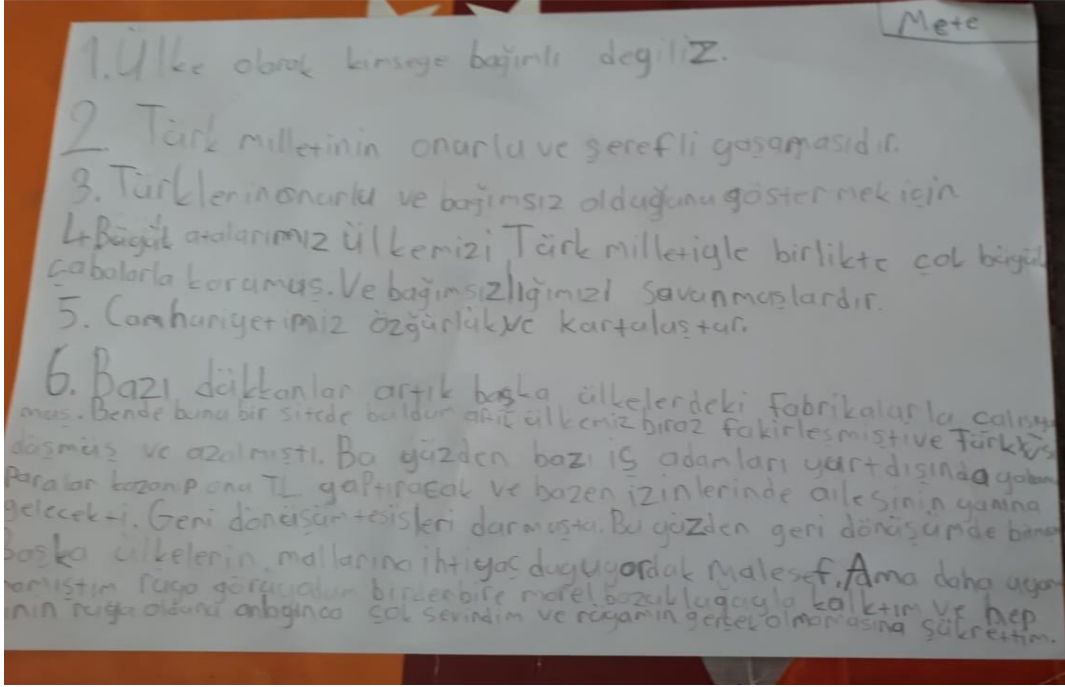 Mete
1. Ülke olarak kimseye bağımlı degiliz.
2. Türk milletinin onurlu ve şerefli yaşamasıdır.
3. Türklerin onurlu ve bağımsız olduğunu göstermek için
4. Büyük atalarımız ülkemizi Türk milletiyle birlikte çok büyük
çabalarla korumuş. Ve bağımsızlığımızı savunmuşlardır.
5. Cumhuriyetimiz özğürlük ve kurtuluştur.
6. Bazı dükkanlar artık başka ülkelerdeki fabrikalarla
muş. Bende bunu bir sitede buldum ülkemiz biraz fakirleşmişti ve Türk
düşmüş ve azalmıştı. Bu yüzden bazı iş adamları yurtdışında
Paralar kazanıp onu TL yaptıracak ve bazen izinlerinde ailesinin yanına
gelecekti. Geri dönüşüm tesisleri durmuştu. Bu yüzden geri dönüşümde
Başka ülkelerin mallarına ihtiyaç duyuyorduk Malesef. Ama daha
mıştım rüya görüyordum birdenbire morel bozukluğuyla kalktım ve hep
inin rüya olduğunu anlayınca çok sevindim ve rüyamın gerçek olmamasına şükrettim.